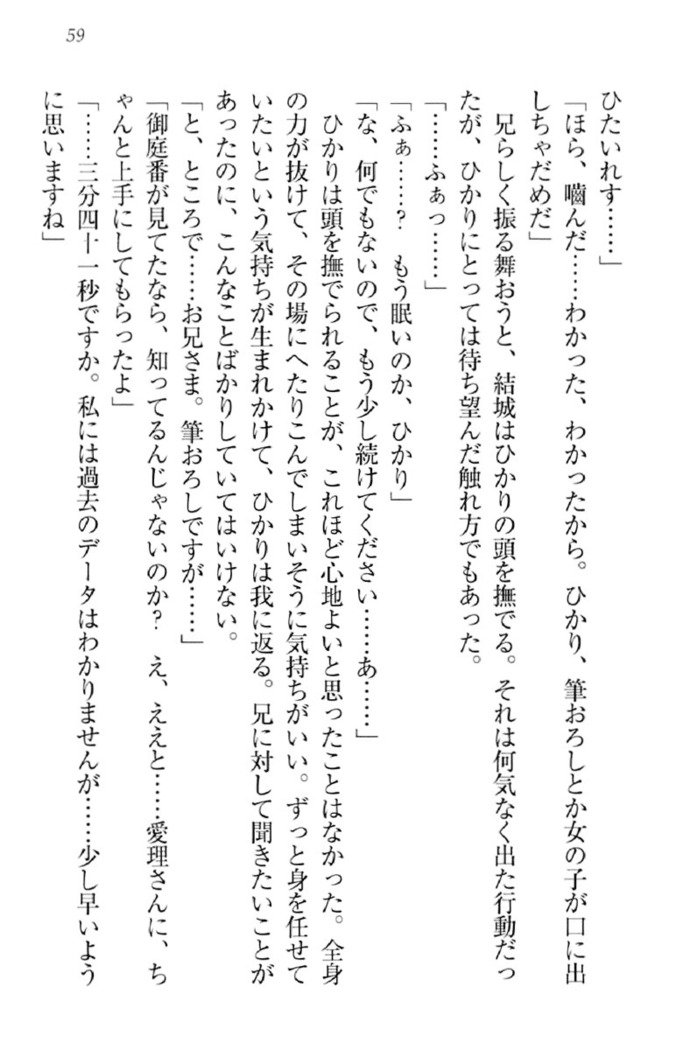 59
ひたいれす……」
「ほら、嚙んだ……わかった、わかったから。ひかり、筆おろしとか女の子が口に出
しちゃだめだ」
兄らしく振る舞おうと、結城はひかりの頭を撫でる。それは何気なく出た行動だっ
たが、ひかりにとっては待ち望んだ触れ方でもあった。
「……ふぁっ……」
「ふぁ……？　もう眠いのか、ひかり」
「な、何でもないので、もう少し続けてください……あ……」
ひかりは頭を撫でられることが、これほど心地よいと思ったことはなかった。全身
の力が抜けて、その場にへたりこんでしまいそうに気持ちがいい。ずっと身を任せて
いたいという気持ちが生まれかけて、ひかりは我に返る。兄に対して聞きたいことが
あったのに、こんなことばかりしていてはいけない。
「と、ところで……お兄さま。筆おろしですが……」
「御庭番が見てたなら、知ってるんじゃないのか？　え、ええと……愛理さんに、ち
ゃんと上手にしてもらったよ」
「……三分四十一秒ですか。私には過去のデータはわかりませんが……少し早いよう
に思いますね」